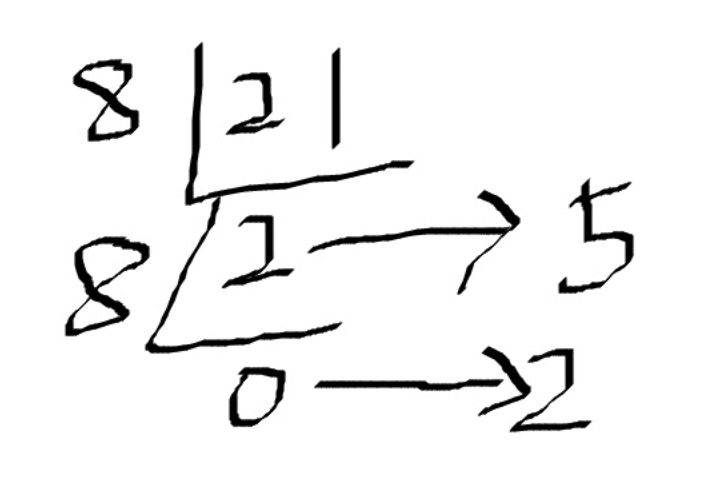 8 21
8 2 → 5
0 → 2